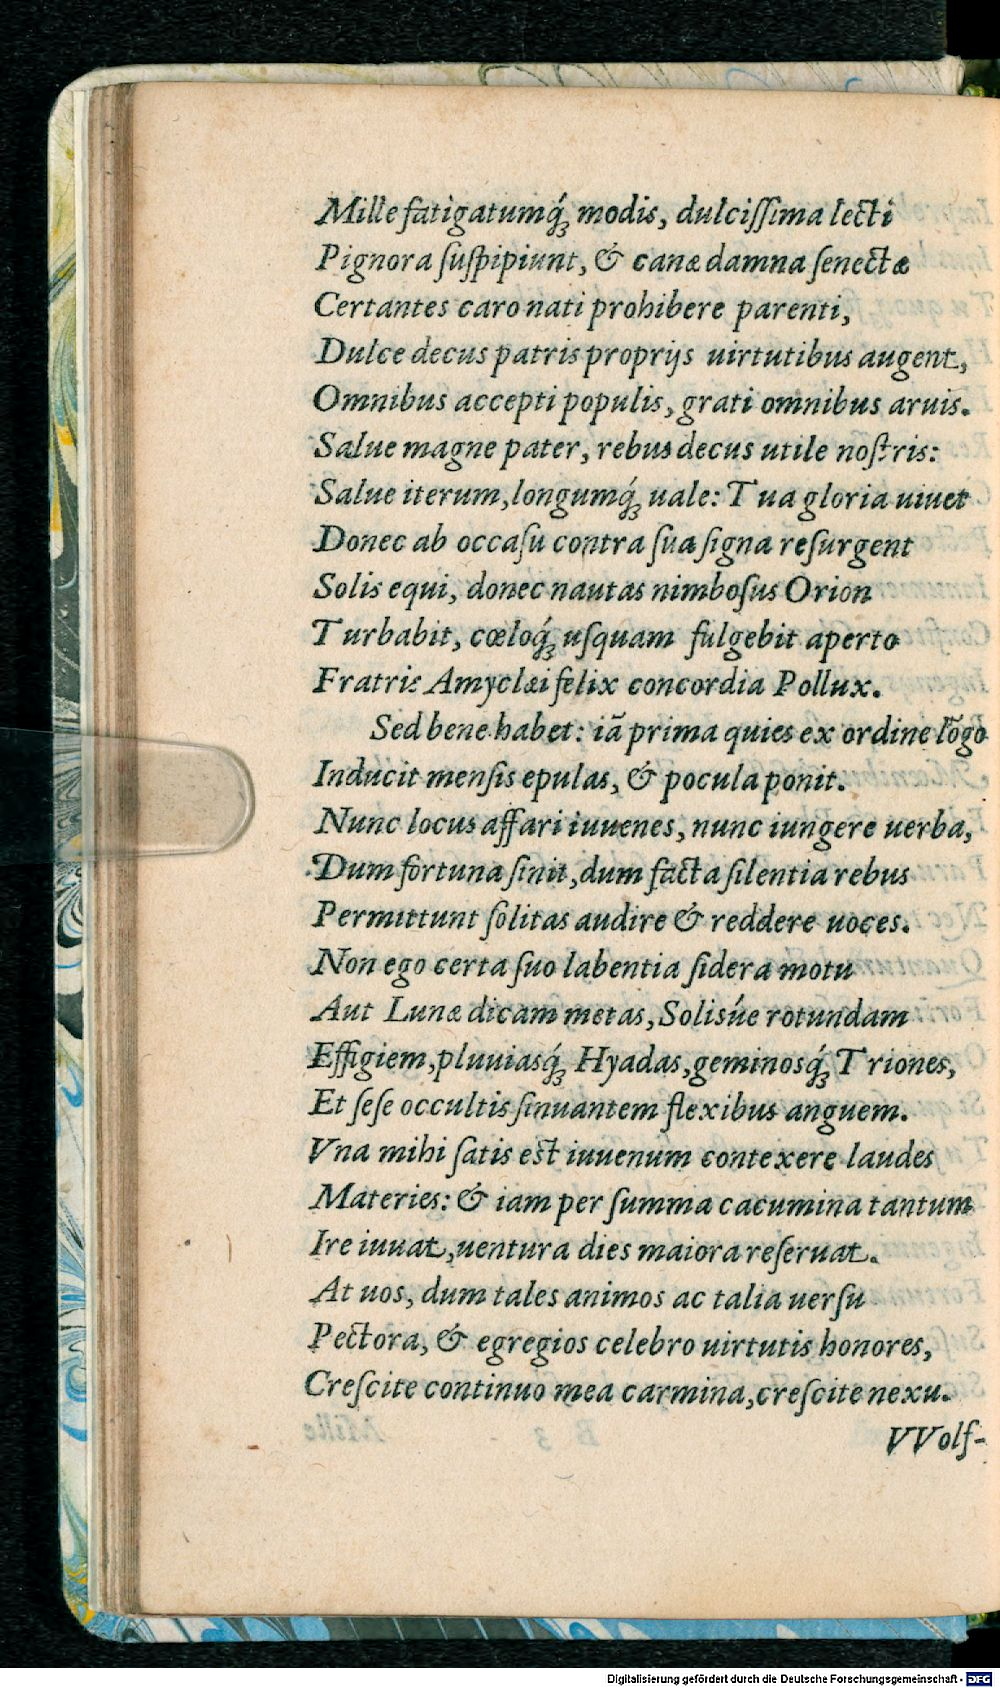 Mille fatigatumq́ꝫ modis, dulciſſima lecti
Pignora ſuſpipiunt, & canæ damna ſenectæ
Certantes caro nati prohibere parenti,
Dulce decus patris proprijs uirtutibus augent,
Omnibus accepti populis, grati omnibus aruis.
Salue magne pater, rebus decus utile noſtris:
Salue iterum, longumq́ꝫ uale: Tua gloria uiuet
Donec ab occaſu contra ſua ſigna reſurgent
Solis equi, donec nautas nimboſus Orion
Turbabit, cœloq́ꝫ uſquam fulgebit aperto
Fratris Amyclæi felix concordia Pollux.
Sed bene habet: iã prima quies ex ordine lõgo
Inducit menſis epulas, & pocula ponit.
Nunc locus affari iuuenes, nunc iungere uerba,
Dum fortuna ſinit, dum facta ſilentia rebus
Permittunt ſolitas audire & reddere uoces.
Non ego certa ſuo labentia ſidera motu
Aut Lunæ dicam metas, Solisúe rotundam
Effigiem, pluuiasq́ꝫ Hyadas, geminosq́ꝫ Triones,
Et ſeſe occultis ſinuantem flexibus anguem.
Vna mihi ſatis eſt iuuenum contexere laudes
Materies: & iam per ſumma cacumina tantum
Ire iuuat, uentura dies maiora reſeruat.
At uos, dum tales animos ac talia uerſu
Pectora, & egregios celebro uirtutis honores,
Creſcite continuo mea carmina, creſcite nexu.
VVolf-
Digitalisierung gefördert durch die Deutsche Forschungsgemeinschaft - DFG